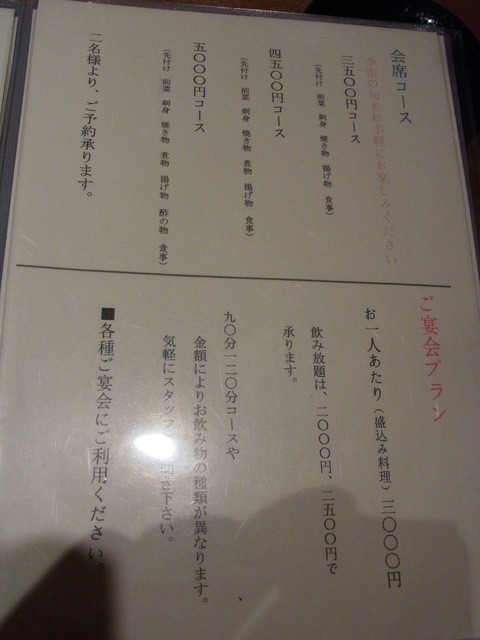 会席コース
季節の旬をお手軽にお楽しみください
三五〇〇円コース
（先付け 前菜 刺身 焼き物 揚げ物 食事）
四五〇〇円コース
（先付け 前菜 刺身 焼き物 煮物 揚げ物 食事）
五〇〇〇円コース
（先付け 前菜 刺身 焼き物 煮物 揚げ物 酢の物 食事）
二名様より、ご予約承ります。
ご宴会プラン
お一人あたり（盛込み料理）三〇〇〇円
飲み放題は、二〇〇〇円、二五〇〇円で
承ります。
九〇分一二〇分コースや
金額によりお飲み物の種類が異なります。
気軽にスタッフ
き下さい。
■各種ご宴会にご利用ください。